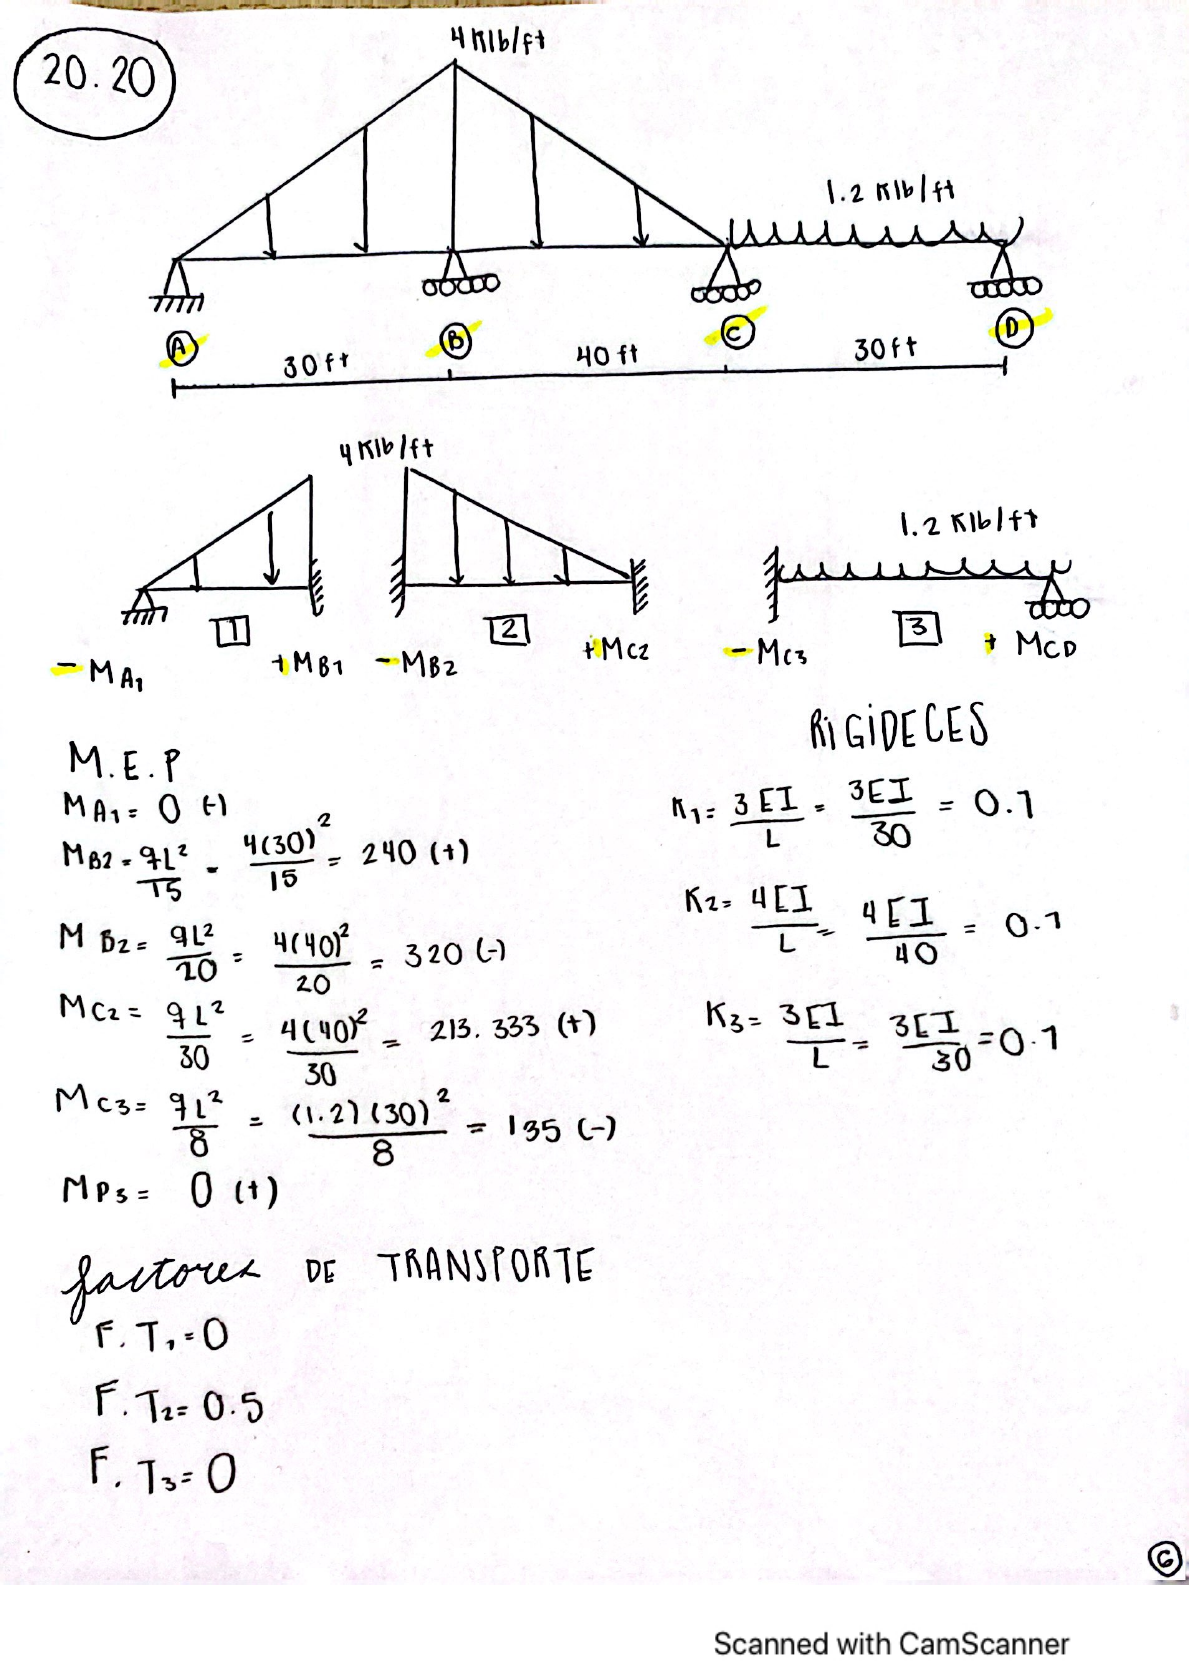 20.20
4 Klb/ft
1.2 Klb/ft
A
B
C
D
30 ft
40 ft
30 ft
4 Klb/ft
1.2 Klb/ft
1
2
3
- MA1
+ MB1
- MB2
+ MC2
- MC3
+ MCD
RIGIDECES
M.E.P
MA1 = 0 (-)
MB2 = qL²/15 = 4(30)²/15 = 240 (+)
MB2 = qL²/20 = 4(40)²/20 = 320 (-)
MC2 = qL²/30 = 4(40)²/30 = 213.333 (+)
MC3 = qL²/8 = (1.2)(30)²/8 = 135 (-)
MP3 = 0 (+)
K1 = 3EI/L = 3EI/30 = 0.1
K2 = 4EI/L = 4EI/40 = 0.1
K3 = 3EI/L = 3EI/30 = 0.1
factores DE TRANSPORTE
F.T1 = 0
F.T2 = 0.5
F.T3 = 0
6
Scanned with CamScanner